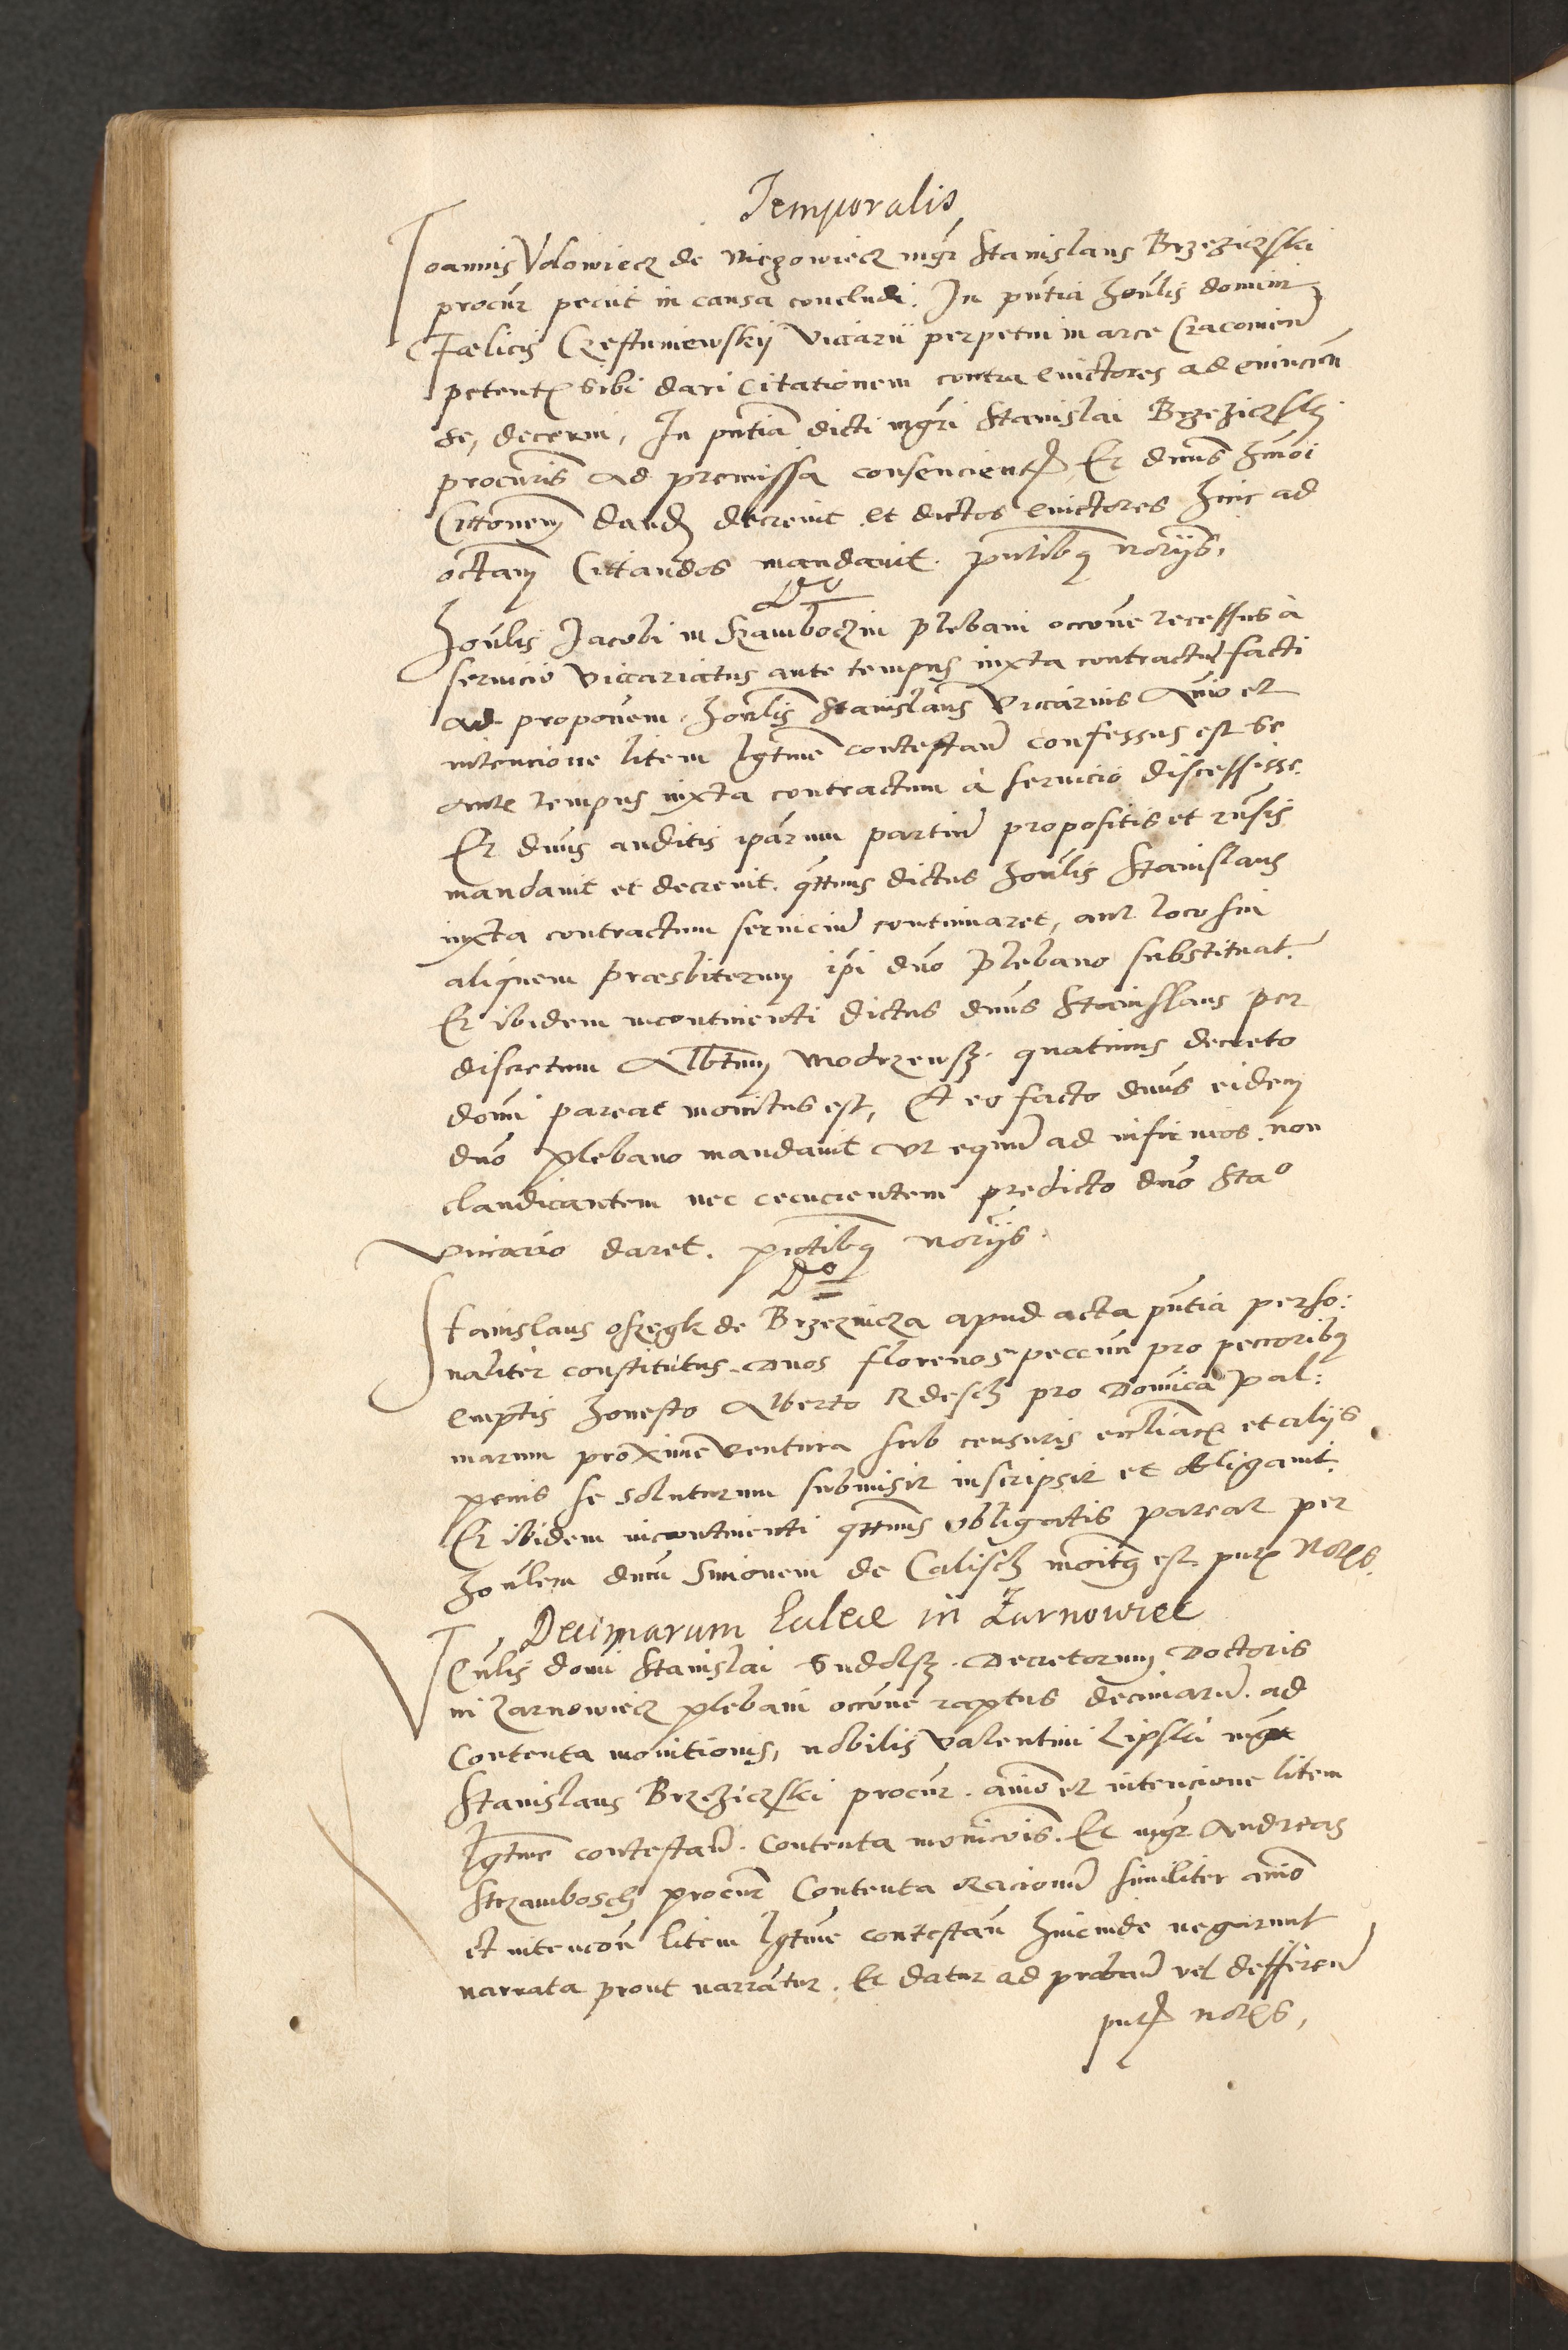 Temporalis
Joannis Vdowiecz de Niegowiecz mgr Stanislaus Brzeziczski
procur peciit in causa concludi. In pntia honlis domini
Foelicis Czestuniewskij Viccarii perpetui in arce Cracouien
petent sibi dari Citationem contra euictores ad euincen
se, decerni, In pntia dicti mgri Stanislai Brzeziczski
procuris ad premissa consencient Et dnus hmoi
Cittonem dand decreuit et dictos euictores hinc ad
octam Cittandos mandauit. pntibus norijs.
Do
Honlis Jacobi in Szamboczin plebani occone recessus à
seruicio viccariatus ante tempus iuxta contractum facti
ad proponem. Honlis Stanislaus Viccarius Animo et
intencione litem lgtme contestan confessus est se
ante tempus iuxta contractum à seruicio discessisse.
Et dnus auditis iparum partium propositis et rnsis
mandauit et decreuit. qttnus dictus honlis Stanislaus
iuxta contractum seruicium continuaret, aut loco sui
aliquem præsbiterum ipi dno Plebano substituat.
Et ibidem incontinenti dictus dnus Stanislaus per
discretum Albtum Modrzewsz. quatinus decreto
domi pareat monitus est, Et eo facto dnus eidem
dno plebano mandauit vt equum ad infirmos. non
claudicantem nec cecucientem predicto dno Stao
viccario daret. pntibus norijs.
Do
Stanislaus Oszegk de Brzeznicza apud acta pntia perso:
naliter constitutus. Duos florenos peccun pro peccoribus
emptis honesto Alberto Rdesch pro Domica Pal:
marum proxime ventura sub censuris ecclîac et alijs
penis se soluturum submisit inscripsit et obligauit.
Et ibidem incontinenti qttnus obligatis pareat per
honlem dnum Simonem de Calisch monitus est. pnt Nors.
Decimarum Laleae in Zarnowiec
Venlis domi Stanislai Sudolsz. Decretorum Doctoris
in Zarnowiecz plebani occone raptus decimarum. ad
Contenta monitionis, nobilis Valentini Lipski mgr
Stanislaus Brzeziczski procur. animo et intencione litem
lgtme contestan. Contenta monicois. Et mgr Andreas
Strzambosch procur Contenta Racionum similiter animo
et intencon litem lgtme contestan hincinde negarunt
narrata prout narrantur. Et datur ad proban vel defferen
pnt nors,